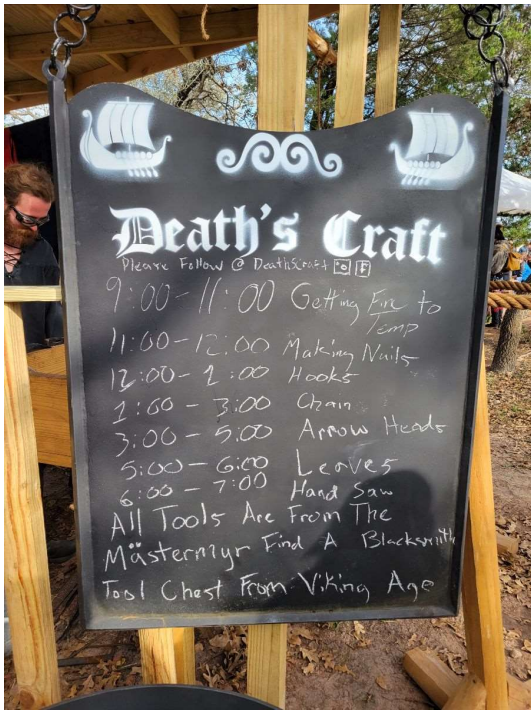 Death's Craft
Please Follow @ DeathsCraft
9:00-11:00 Getting Fire to
Temp
11:00-12:00 Making Nails
12:00-1:00 Hooks
1:00-3:00 Chain
3:00-5:00 Arrow Heads
5:00-6:00 Leaves
6:00-7:00 Hand Saw
All Tools Are From The
Mästermyr Find A Blacksmith
Tool Chest From Viking Age